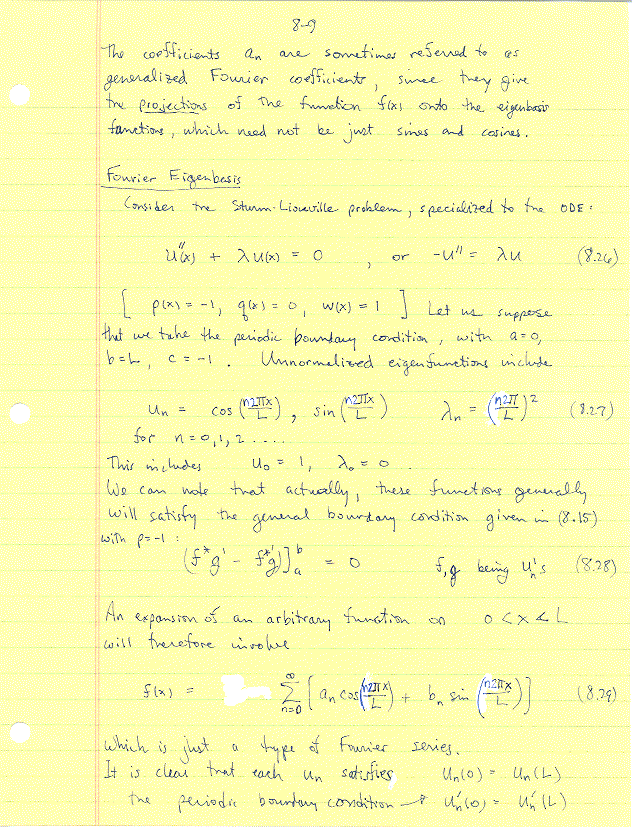 8-9
The coefficients an are sometimes referred to as
generalized Fourier coefficients, since they give
the projections of the function f(x) onto the eigenbasis
functions, which need not be just sines and cosines.
Fourier Eigenbasis
Consider the Sturm-Liouville problem, specialized to the ODE:
u''(x) + λu(x) = 0 , or -u'' = λu (8.26)
[ p(x) = -1, q(x) = 0, w(x) = 1 ] Let us suppose
that we take the periodic boundary condition, with a=0,
b=L, c=-1. Unnormalized eigenfunctions include
un = cos (n2πx/L), sin (n2πx/L) λn = (n2π/L)² (8.27)
for n=0,1,2 ....
This includes u0 = 1, λ0 = 0.
We can note that actually, these functions generally
will satisfy the general boundary condition given in (8.15)
with p=-1:
(f*g' - f*'g)]ₐᵇ = 0 f,g being un's (8.28)
An expansion of an arbitrary function on 0<x<L
will therefore involve
f(x) = ∞Σn=0 [an cos(n2πx/L) + bn sin (n2πx/L)] (8.29)
which is just a type of Fourier series.
It is clear that each un satisfies un(0) = un(L)
the periodic boundary condition → un'(0) = un'(L)